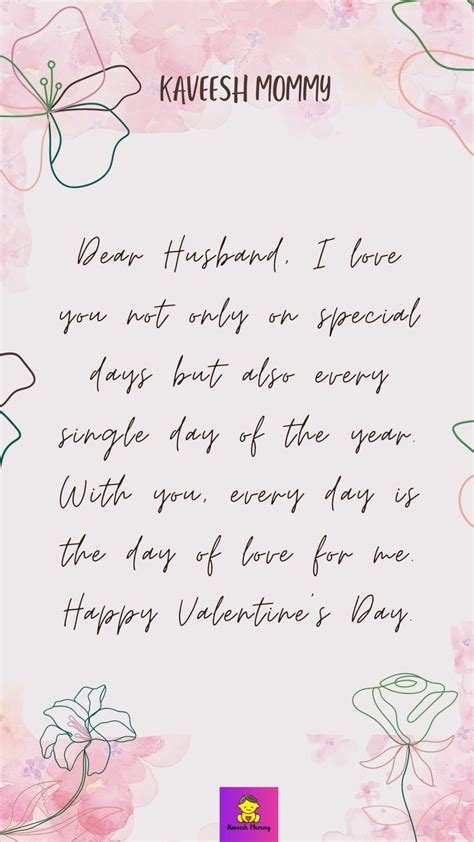 KAVEESH MOMMY
Dear Husband, I love
you not only on special
days but also every
single day of the year.
With you, every day is
the day of love for me.
Happy Valentine's Day.
Kaveesh Mommy